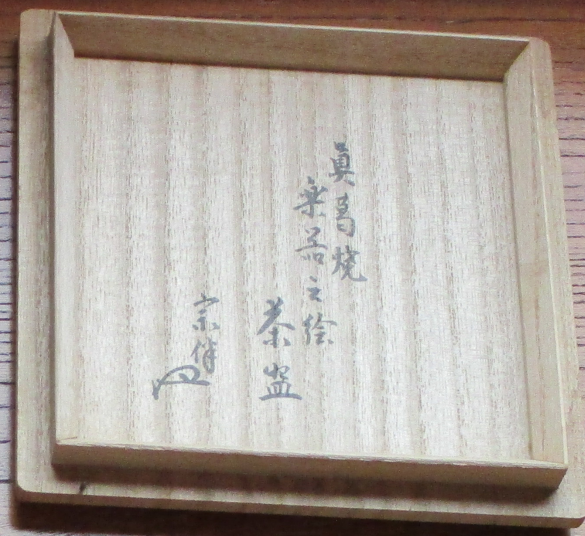 眞葛焼
楽器之絵
茶盌
宗伴